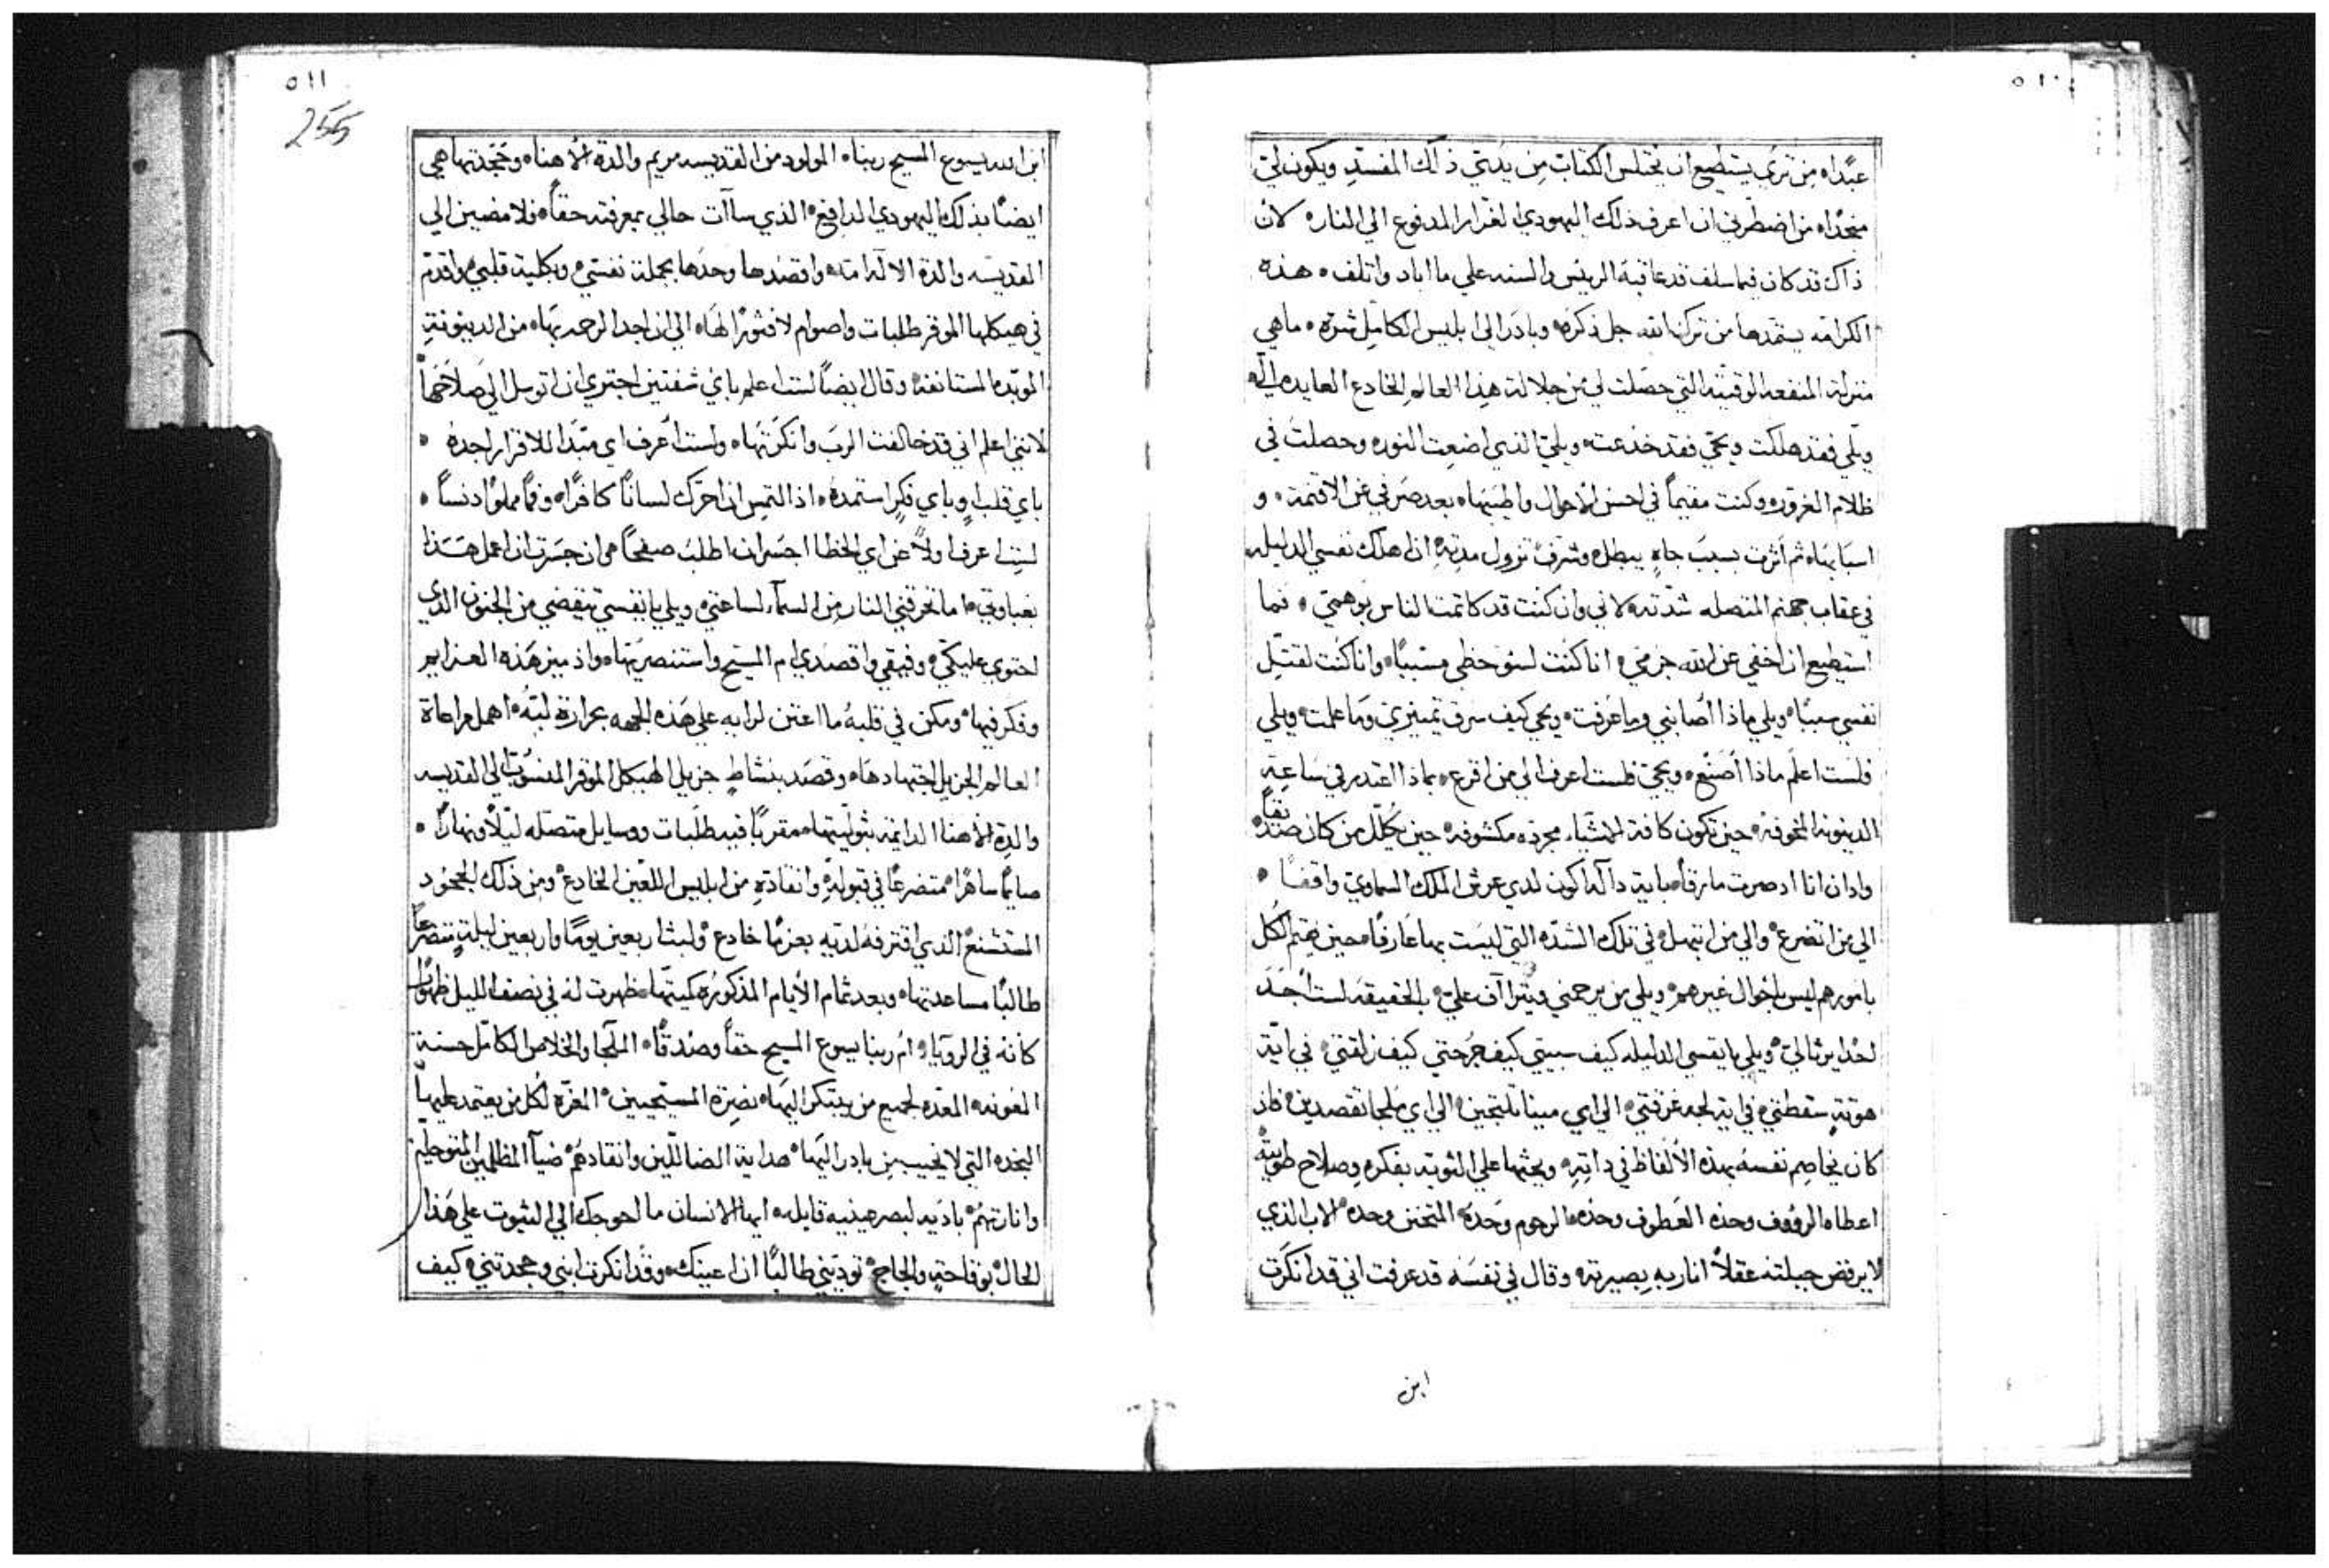 ٥١٠
عبدًاه من ترى يستطيع ان يختلس الكتاب من يدي ذاك المفسد ويكون لي
منجدًاه من اضطرني ان اعرف ذلك اليهودي الغرار المدفوع الي الناره لان
ذاك قد كان فيما سلف قد عاقبه الريس والسنه علي ما اباد واتلف ٥ هذه
الكرامه يستمدها من ترك الله جل ذكره وبادر الي ابليس الكامل شره ٥ ما هي
منزلة المنفعه الوقتيه التي حصلت لي من جلالة هذا العالم الخادع العايده
ويلي فقد هلكت ويحي فقد خذعت ويلي الذي اضعت النوره وحصلت في
ظلام الغروره وكنت مقيمًا في احسن الاحوال واطيبها ه بعد صرفي عن الاقنمه ٥ و
اسبابهاه ثم اثرت بسبب جاه يبطل وشرف تزول مدته ان اهلك نفسي الدليله
في عقاب جهنم المتصله شدته ه لاني وان كنت قد كاتمت الناس بوهمي ٥ فما
استطيع ان اخفي عن الله جرمي ه انا كنت لسو حظي مسببًا وانا كنت لقتل
نفسي سببًا ويلي ماذا اصابني وما عرفت ويحي كيف سرق تمييزي وما علمت ويلي
فلست اعلم ماذا اصنع ويحي فلست اعرف الي من اقرع ه بماذا اعتدر في ساعة
الدينونه المخوفه حين تكون كافة الاشياء مجرده مكشوفه حين يكلل من كان صديقًا
وادان انا اد صرت مارقًا باية دالة اكون لدي عرش الملك السماوي واقفًا ٥
الي من اتضرع والي من ابتهل في تلك الشده التي ليست بها عارفًا حين يهتم الكل
بامورهم ليس باحوال غيرهم ويلي من يرحمني ويتراآف علي بالحقيقه لست اجد
احدا يرثا لي ويلي يا نفسي الدليله كيف سبيتي كيف جرحتي كيف زلقتي في اية
هوتة سقطتي في اية لجه غرقتي الي اي مينا تلتجين الي اي ملجا تقصدين فاذ
كان يخاصم نفسه بهذه الالفاظ في داته ويحثها علي التوبه بفكره وصلاح طويته
اعطاه الرووف وحده العطوف وحده الرحوم وحده المتحنن وحده الاب الذي
لا يرفض جبلته عقلاً انار به بصيرته وقال في نفسه قد عرفت اني قد انكرت
ابن
٥١١
255
ابن الله يسوع المسيح ربنا المولود من القديسه مريم والدة الاهناه وجحدتها هي
ايضًا بذلك اليهودي الدافع الذي ساآت حالي بمعرفته حقًا فلامضين الي
القديسه والدة الاله امته واقصدها وحدها بجملة نفسي وبكلية قلبي واقدم
في هيكلها الموقر طلبات واصوام لا فتورًا لها ه الي ان اجد الرحمه بها ه من الدينونة
الموبده المستانفه وقال ايضًا لست اعلم باي شفتين اجتري ان اتوسل الي صلاحها
لانني اعلم اني قد خالفت الرب وانكرتها ه ولست اعرف اي مبتدا للاقرار اجده ٥
باي قلب وباي فكر استمده اذا التمس ان احرك لسانًا كافرًا وفمًا مملوًا دنسًا ٥
لست اعرف اولاً عن اي الخطا اجسر ان اطلب صفحًا ه وان جسرت ان اعمل هذا
بغباوتي اما تحرقني النار من السماء لساعتي ويلي يا نفسي تيقضي من الجنون الذي
احتوي عليكي وفيقي واقصدي ام المسيح واستنصريها ه واذ ميز هذه العزايم
وفكر فيها ومكن في قلبه ما اعتن لرايه علي هذه الجهه بحرارة لبه اهمل مراعاة
العالم الجزيل اجتهادها ه وقصد بنشاط جزيل الهيكل الموقر المنسوب الي القديسه
والدة الاهنا الدايمه بتوليتها ه مقربًا فيه طلبات ووسايل متصله ليلاً ونهارًا ٥
صايمًا ساهرًا متضرعًا في قبوله وانقاده من ابليس اللعين الخادع ومن ذلك الجحود
المستشنع الذي اقترفه لديه بعزمًا خادع ولبث اربعين يومًا واربعين ليلة متضرعًا
طالبًا مساعدتها ه وبعد تمام الايام المذكوره كميتها ه ظهرت له في نصف الليل ظهورًا
كانه في الرويا ه ام ربنا يسوع المسيح حقًا وصدقًا الملجا والخلاص الكامل حسنة
المعونه المعده لجميع من يبتكر اليها ه نصرة المسيحيين المعزه لكل من يعتمد عليها
النجده التي لا يخيب من بادر اليها هداية الضالين وانقادهم ضيآ المظلمين
وانارتهم باديه لبصر عينيه قايله ايها الانسان ما احوجك الي الثبوت علي هذا
الحال بوقاحة والحاج توديني طالبًا ان اعينك وقد انكرت ابني وجحدتني كيف